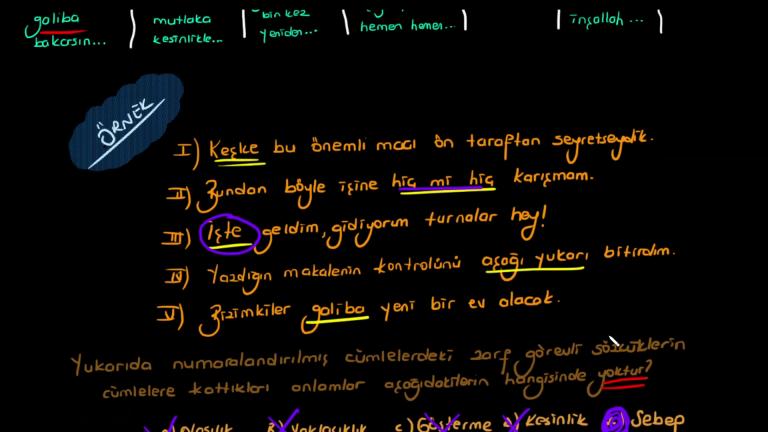 galiba
bakarsın...
mutlaka
kesinlikle...
bin kez
yeniden...
hemen hemen...
inşallah ...
ÖRNEK
I) Keşke bu önemli maçı ön taraftan seyretseydik.
II) Bundan böyle işine hiç mi hiç karışmam.
III) İşte geldim, gidiyorum turnalar hey!
IV) Yazdığın makalenin kontrolünü aşağı yukarı bitirdim.
V) Bizimkiler galiba yeni bir ev alacak.
Yukarıda numaralandırılmış cümlelerdeki zarf görevli sözcüklerin
cümlelere kattıkları anlamlar aşağıdakilerin hangisinde yoktur?
Olasılık Yaklaşıklık c) Gösterme Kesinlik Sebep